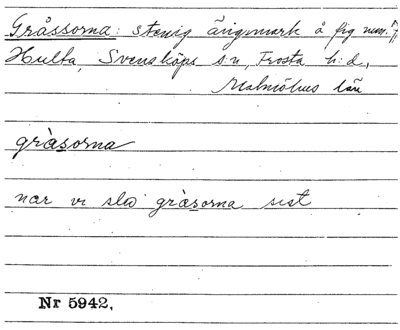 Gråssorna: stenig ängsmark å fig num. 7,
Hulta, Svensköps s:n, Frosta h:d,
Malmöhus län
gràsorna
nær vi slå gràsorna sist
Nr 5942.